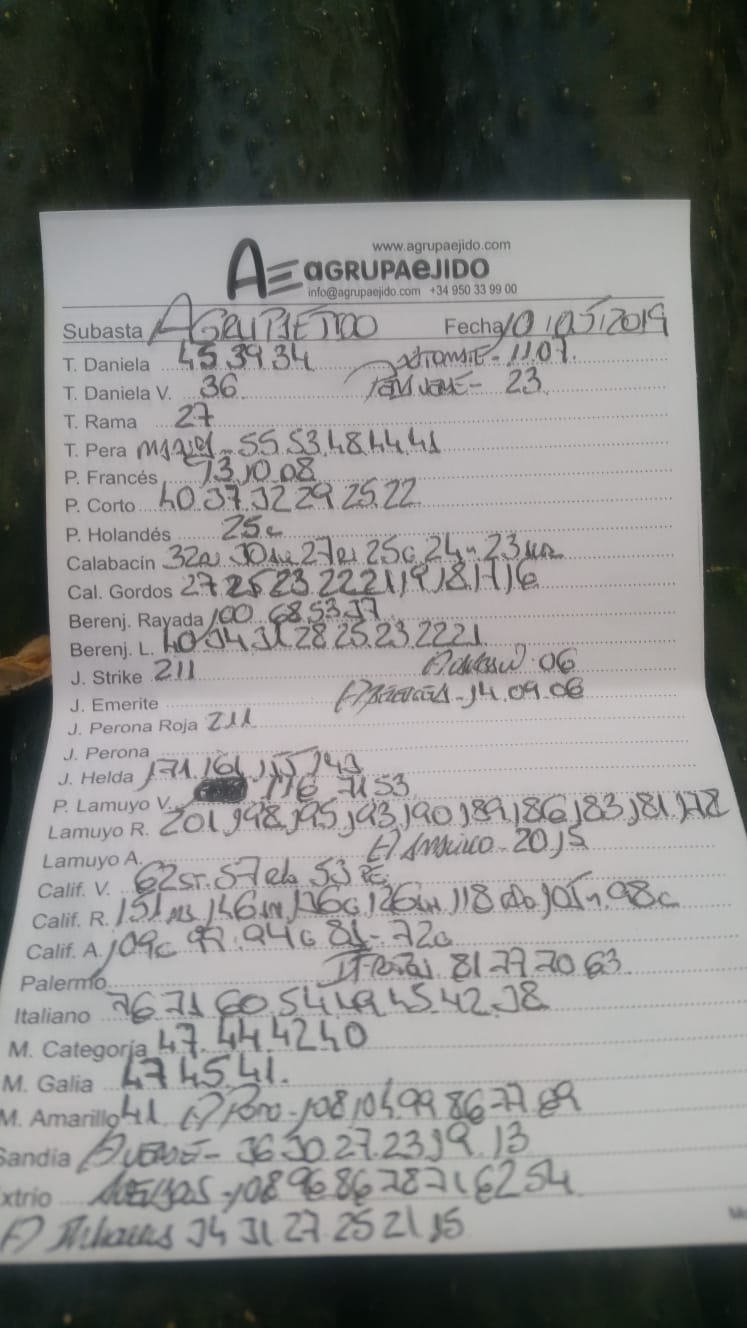 www.agrupaejido.com
AE aGRUPAeJIDO
info@agrupaejido.com +34 950 33 99 00
Subasta AGRUPAEJIDO Fecha 10/05/2019
T. Daniela 45.39.34 11.07.
T. Daniela V. 36 23
T. Rama 27
T. Pera 55.53.48.44.41
P. Francés 13.10.08
P. Corto 40.37.32.29.25.22
P. Holandés 25c
Calabacín
Cal. Gordos 27.25.23.22.21.19.18.17.16
Berenj. Rayada 100.68.53.37
Berenj. L. 40.34.31.28.25.23.22.21
J. Strike 211 06
J. Emerite 14.09.06
J. Perona Roja 211
J. Perona
J. Helda 171.161.155.143
P. Lamuyo V. 116 71.53
Lamuyo R. 201.198.195.193.190.189.186.183.181.178
Lamuyo A. 20.15
Calif. V.
Calif. R.
Calif. A.
Palermo 81.77.70.63
Italiano 76.71.60.54.49.45.42.38
M. Categoría 47.44.42.40
M. Galia 47.45.41.
M. Amarillo 41 108.104.99.86.77.69
Sandía 36.30.27.23.19.13
xtrio 108.96.86.78.71.62.54
34.31.27.25.21.15